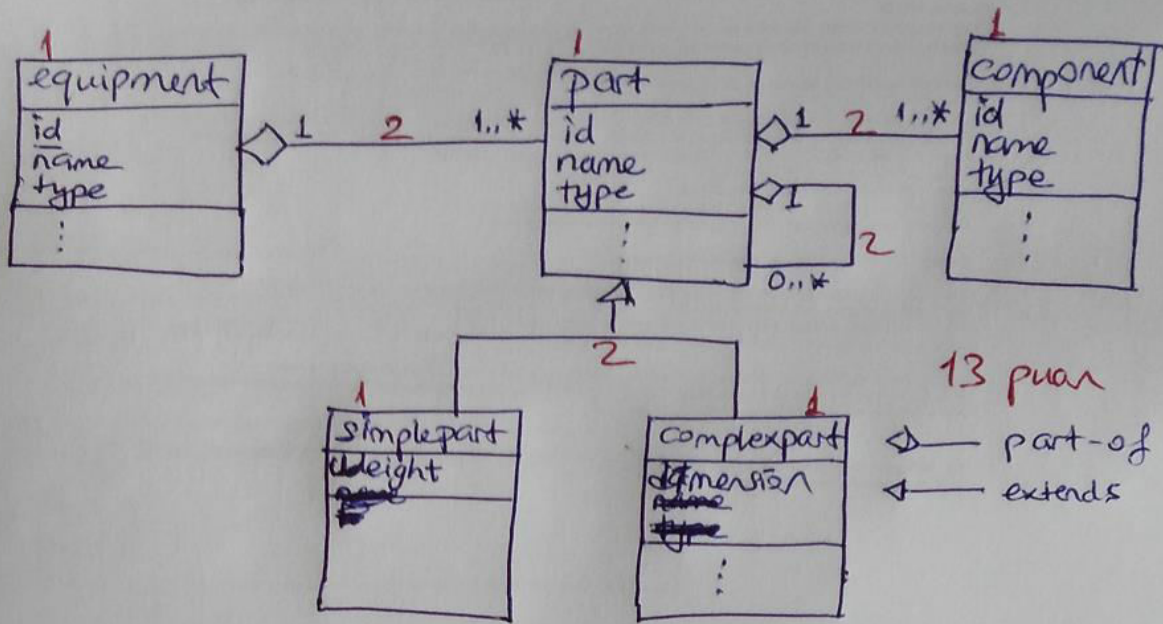 1
equipment
id
name
type
1 2 1..*
1
part
id
name
type
1 2 1..*
1
2
0..*
1
component
id
name
type
2
1
simplepart
weight
1
complexpart
dimension
type
13 puan
part-of
extends